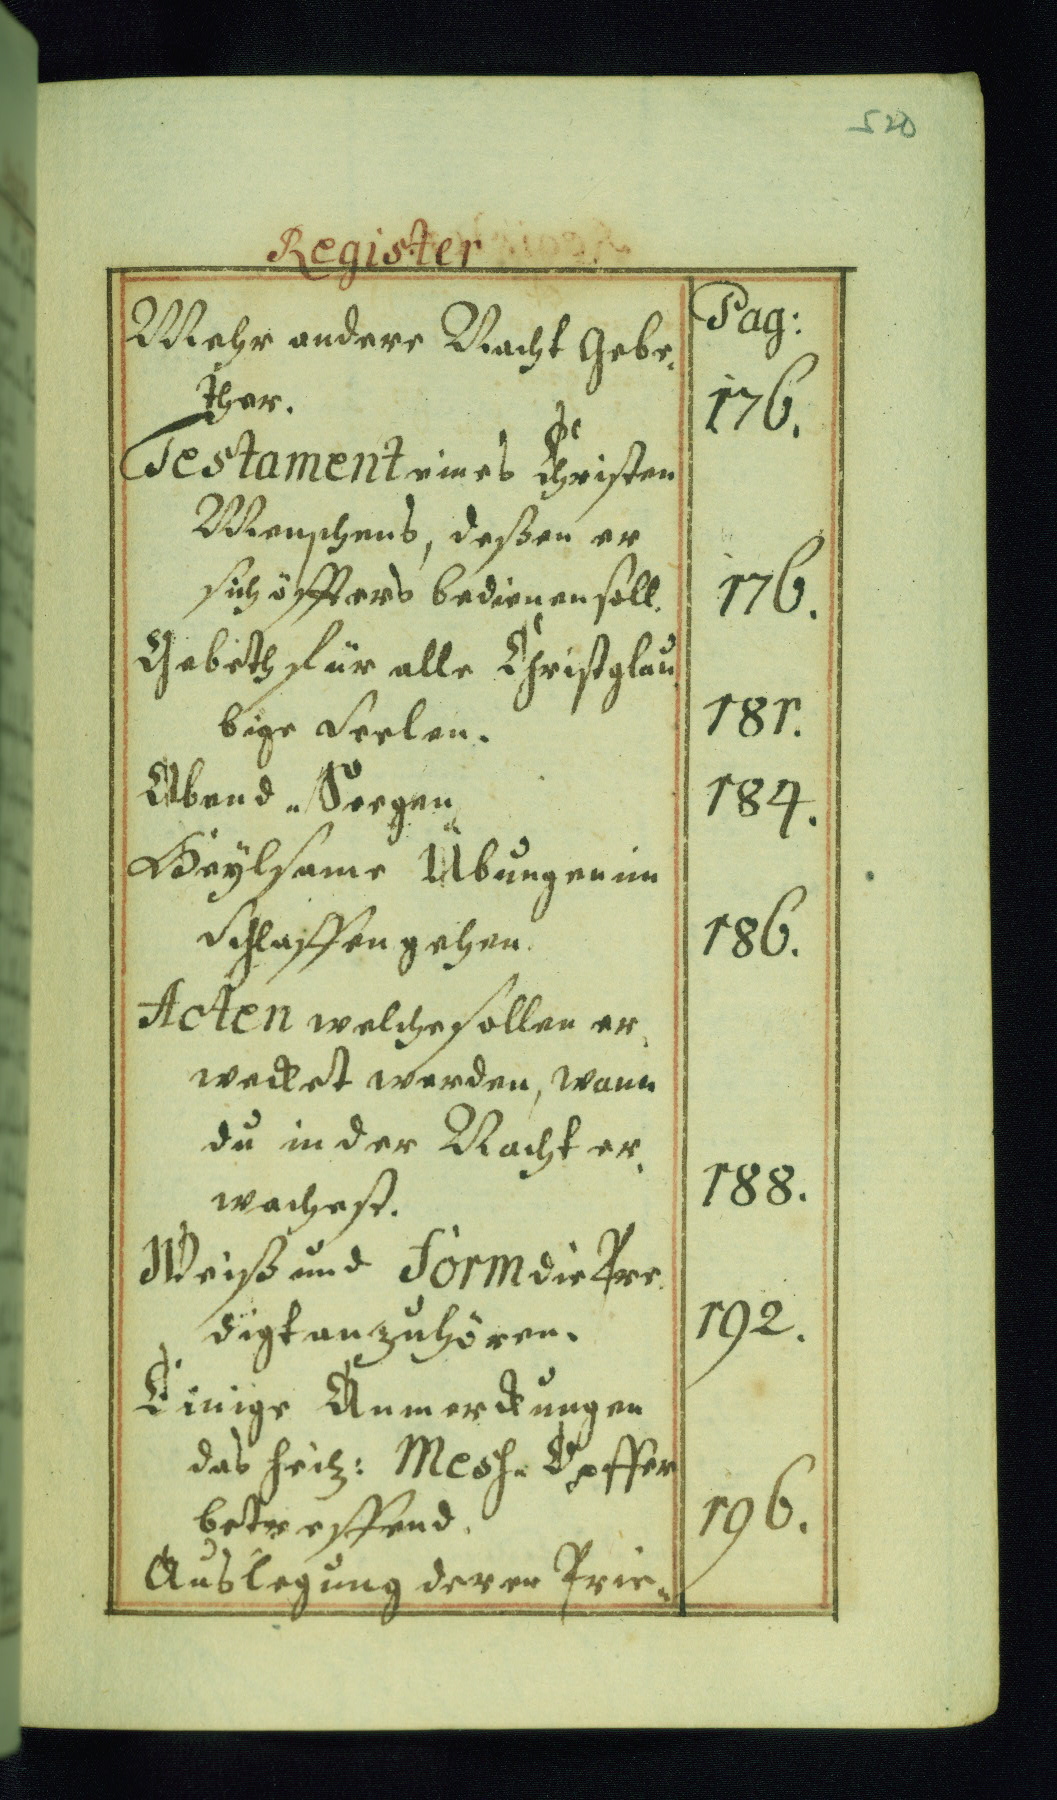 520
Register
Pag:
Mehr andere Nacht Gebe-
ther. 176.
Testament eines Christen
Menschens, deßen er
sich öffters bedienen soll. 176.
Gebeth für alle Christglau
bige Seelen. 181.
Abend-Seegen 184.
Heÿlsame Übungen im
Schlaffen gehen. 186.
Acten welche sollen er-
wecket werden, wann
du in der Nacht er-
wachest. 188.
Weiß und Form die Pre
digt anzuhören. 192.
Einige Anmerckungen
das heil: Mesß-Opffer
betreffend. 196.
Auslegung derer Prie-